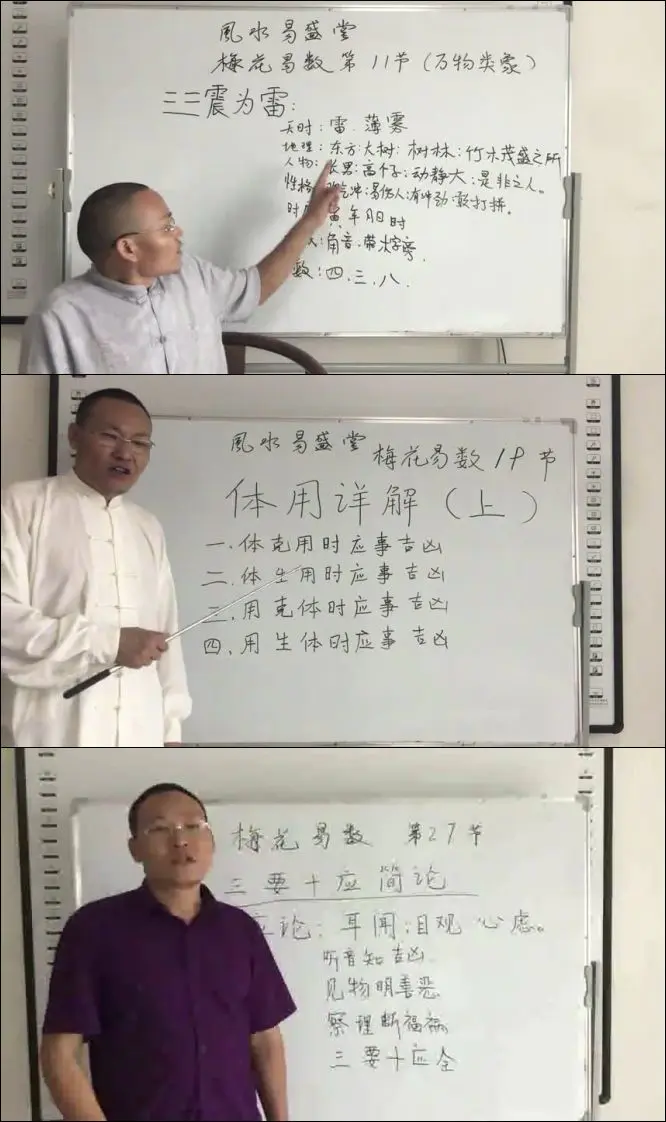 風水易盛堂
梅花易数第11节(万物类象)
☳震为雷:
天时:雷.薄雾
地理:东方:大树:树林:竹木茂盛之所
人物:长男:高个子:动静大:是非之人。
性格:冲:易伤人:有冲劲:敢打拼。
时 年月日时
角音.带木字旁.
数:四.三.八.
風水易盛堂 梅花易数19节
体用详解(上)
一.体克用时应事吉凶
二.体生用时应事吉凶
三.用克体时应事吉凶
四.用生体时应事吉凶
梅花易数 第27节
三要十应简论
论:耳闻:目观 心虑。
听音知吉凶
见物明善恶
察理断福祸
三要十应全